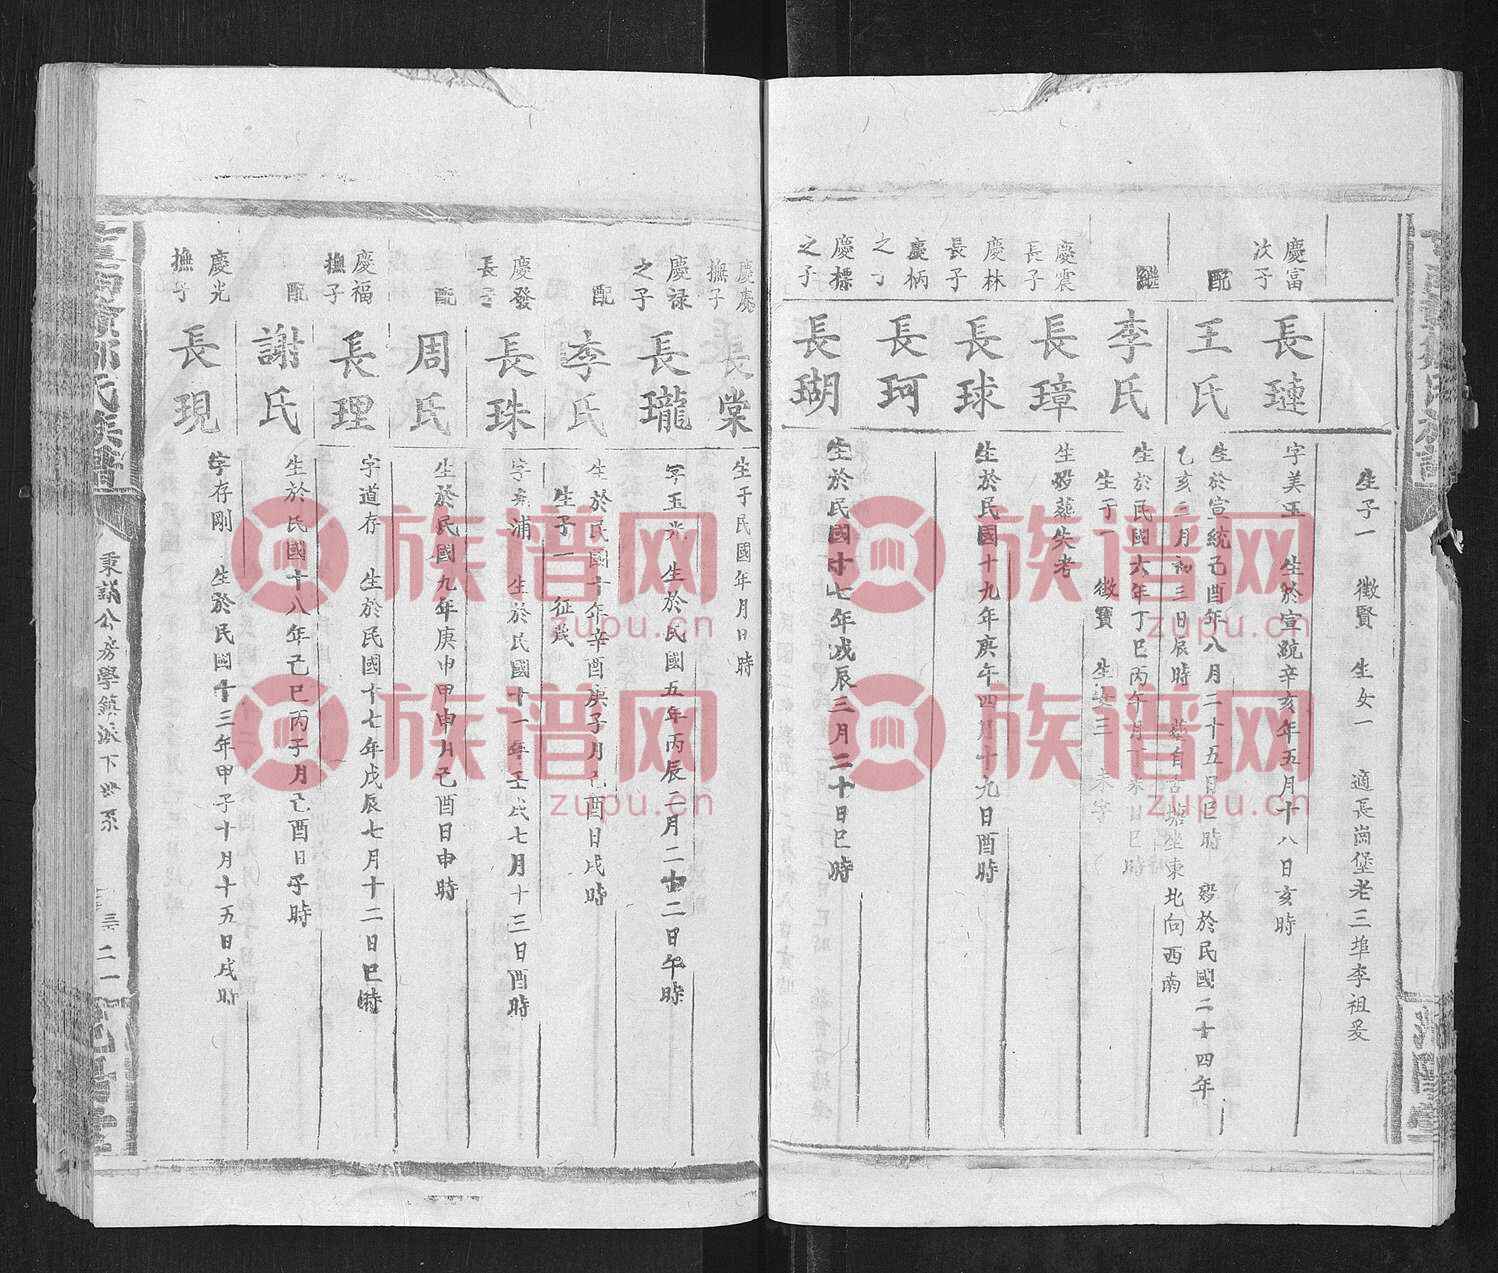 生子一 徵賢 生女一 適長崗堡老三埠李祖爰
慶富次子
長璉
字美玉 生於宣統辛亥年五月十八日亥時
配
王氏
生於宣統己酉年八月二十五日巳時 歿於民國二十四年
乙亥三月初三日辰時 葬自古塘坐東北向西南
繼
李氏
生於民國六年丁巳丙午月
生子一 徵寶 生女三 未字
慶震長子
長璋
生歿葬失考
慶林長子
長球
生於民國十九年庚午四月十九日酉時
慶柄之子
長珂
慶標之子
長瑚
生於民國十七年戊辰三月二十日巳時
撫子
長棠
生于民國年月日時
慶禄之子
長瓏
字玉光 生於民國五年丙辰二月二十二日午時
配
李氏
生於民國十年辛酉庚子月己酉日戌時
生子一 征成
慶發長子
長珠
生於民國十一年壬戌七月十三日酉時
配
周氏
生於民國九年庚申甲申月己酉日申時
慶福撫子
長理
字道存 生於民國十七年戊辰七月十二日巳時
配
謝氏
生於民國十八年己巳丙子月己酉日子時
慶光撫子
長現
字存剛 生於民國十三年甲子十月十五日戌時
氏族譜
公房學鎮派下世系
二一
族谱网
zupu.cn
族谱网
zupu.cn
族谱网
zupu.cn
族谱网
zupu.cn